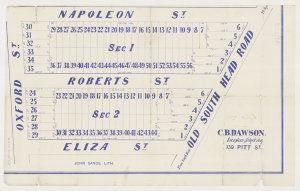 NAPOLEON ST.
30 29 28 27 26 25 24 23 22 21 20 19 18 17 16 15 14 13 12 11 10 9 8 7 6
31 5
SEC 1
35
36 37 38 39 40 41 42 43 44 45 46 47 48 49 50 51 52 53 54 55 56 1
ROBERTS ST.
OXFORD ST.
OLD SOUTH HEAD ROAD
24 23 22 21 20 19 18 17 16 15 14 13 12 11 10 9 8 7 6
25 5
26 4
SEC 2
28
29 30 31 32 33 34 35 36 37 38 39 40 41 42 43 44
ELIZA ST.
C.B. DAWSON.
130 PITT ST.
JOHN SANDS LITH.